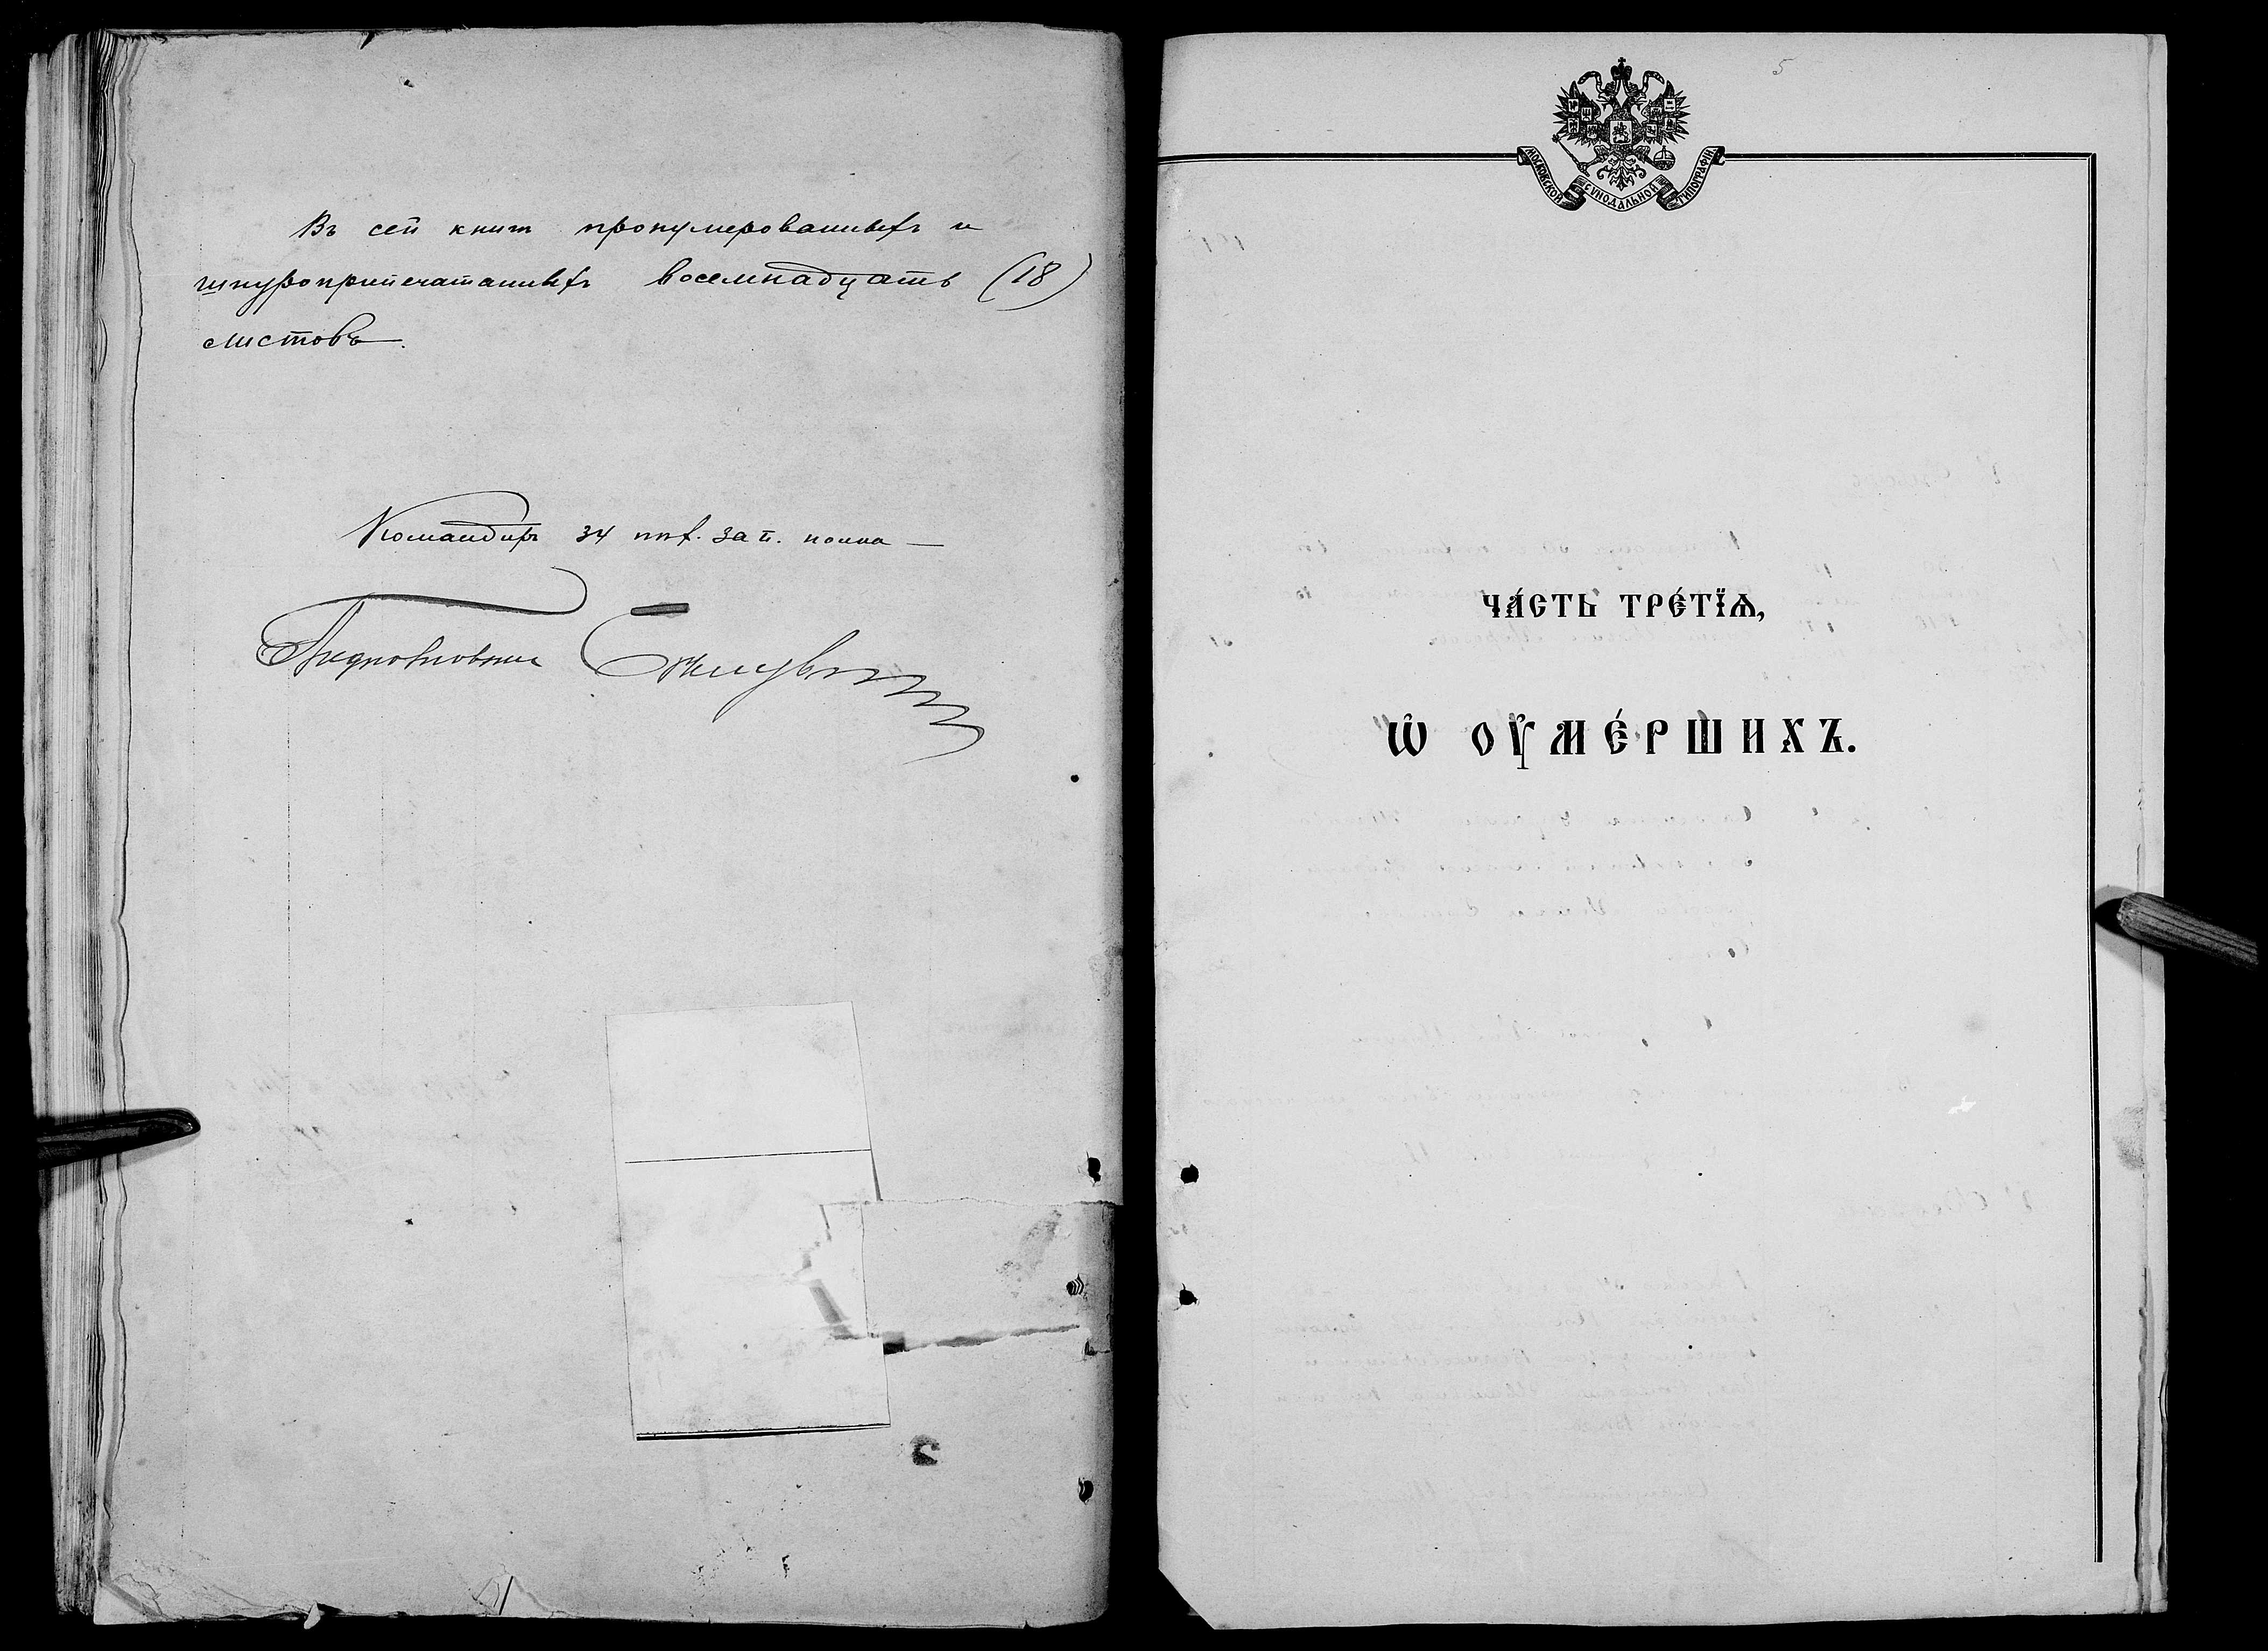 Въ сей книг пронумерованныхъ и
шнуроприпечатанныхъ восемнадцать (18)
листовъ.
Командиръ 34 пѣх. зап. полка
5
МОСКОВСКОЙ СѴНОДАЛЬНОЙ ТИПОГРАФІИ
ЧА́СТЬ ТРЕ́ТЇѦ,
Ѡ҆ ОУ҆МЕ́РШИХЪ.